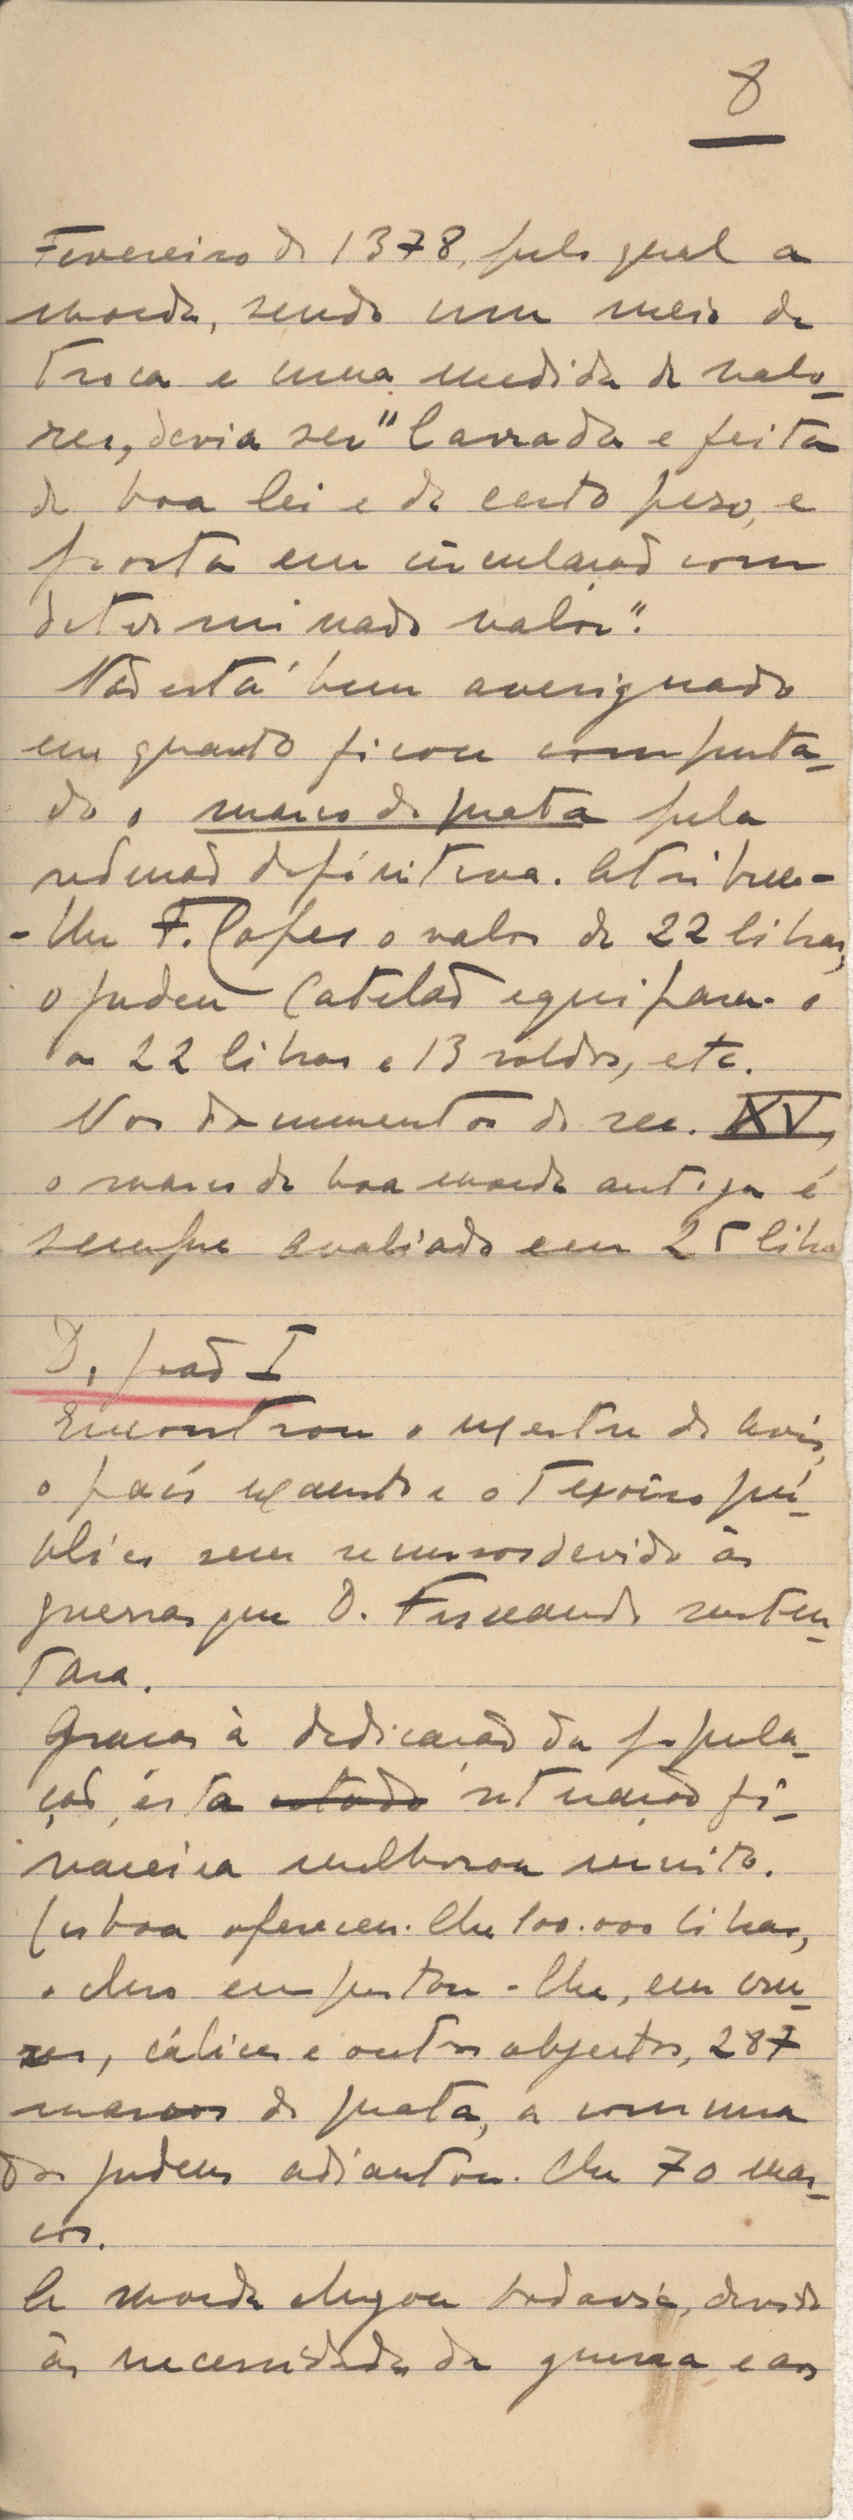 8
Fevereiro de 1378, pelo qual a
moeda, sendo um meio de
troca e uma medida de valo-
res, devia ser "lavrada e feita
de boa lei e de certo peso, e
posta em circulação com
determinado valor".
Não está bem averiguado
em quanto ficou computa-
do o marco de prata pela
redução definitiva. Atribue-
-lhe F. Lopes o valor de 22 libras,
o judeu Catelão equipara-o
a 22 libras e 13 soldos, etc.
Nos documentos do sec. XV,
o marco de boa moeda antiga é
sempre avaliado em 25 libra
D. João I
Encontrou o mestre de Avis,
o país exausto e o Tesoiro pú-
blico sem recursos devido às
guerras que D. Fernando susten-
tara.
Graças à dedicação da popula-
ção, esta estado situação fi-
nanceira melhorou muito.
Lisboa ofereceu-lhe 100.000 libras,
o clero emprestou-lhe, em cru-
zes, cálices e outros objectos, 287
marcos de prata, a comuna
dos judeus adiantou-lhe 70 mar-
cos.
A moeda chegou todavia, devido
às necessidades da guerra e aos